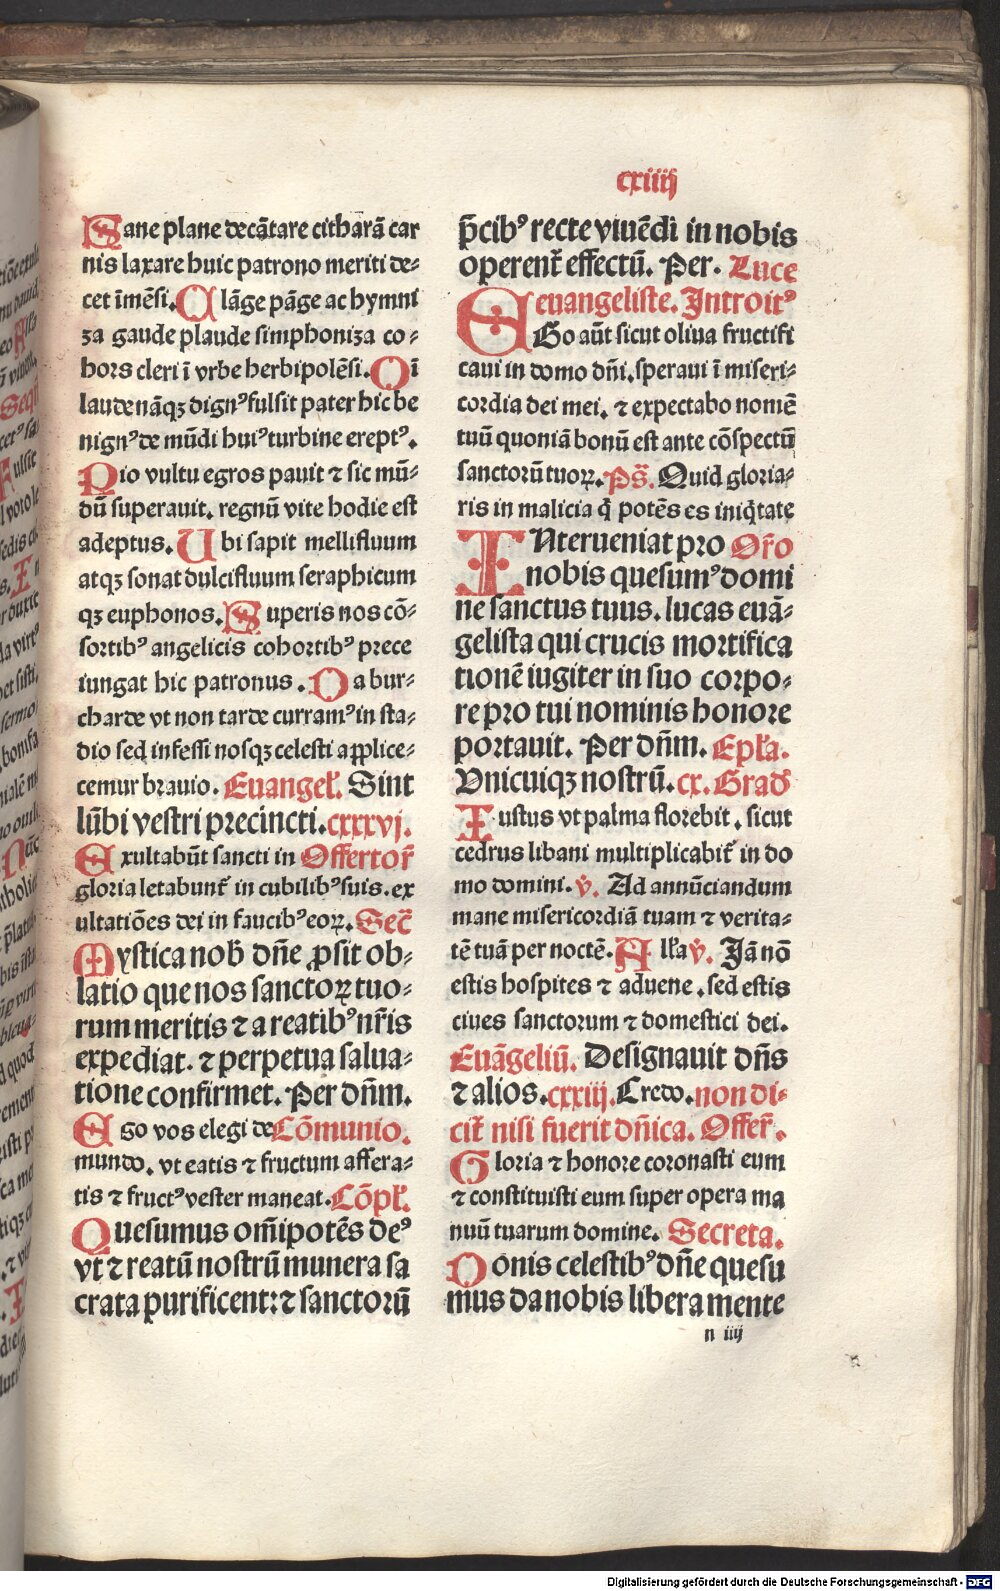 cxiiij
Sane plane decātare citharā car
nis laxare huic patrono meriti de⸗
cet īmēsi. Clāge pāge ac hymni
za gaude plaude simphoniza co⸗
hors cleri ī vrbe herbipolēsi. Oī
laude nāqꝫ dignꝰ fulsit pater hic be
nignꝰ de mūdi huiꝰ turbine ereptꝰ.
Pio vultu egros pauit ⁊ sic mū⸗
dū superauit. regnū vite hodie est
adeptus. Ubi sapit mellifluum
atqꝫ sonat dulcifluum seraphicum
qꝫ euphonos. Superis nos cō⸗
sortibꝰ angelicis cohortibꝰ prece
iungat hic patronus. O a bur⸗
charde vt non tarde curramꝰ in sta⸗
dio sed infessi nosqꝫ celesti applice⸗
cemur brauio. Euangel̄. Sint
lūbi vestri precincti. cxxxvj.
Exultabūt sancti in Offertor̄
gloria letabunt̄ in cubilibꝰ suis. ex
ultatiōes dei in faucibꝰ eoꝝ. Sec̄
Mystica nob̄ dn̄e ꝓsit ob⸗
latio que nos sanctoꝝ tuo⸗
rum meritis ⁊ a reatibꝰ nr̄is
expediat. ⁊ perpetua salua⸗
tione confirmet. Per dn̄m.
Ego vos elegi de Cōmunio.
mundo. vt eatis ⁊ fructum affera⸗
tis ⁊ fructꝰ vester maneat. Cōpl̄.
Quesumus om̄ipotēs deꝰ
vt ⁊ reatū nostrū munera sa
crata purificent: ⁊ sanctorū
p̄cibꝰ recte viuēdi in nobis
operent̄ effectū. Per. Luce
euangeliste. Introitꝰ
EGo aūt sicut oliua fructifi
caui in domo dn̄i. speraui ī miseri⸗
cordia dei mei. ⁊ expectabo nomē
tuū quoniā bonū est ante cōspectū
sanctorū tuoꝝ. Ps̄. Quid gloria⸗
ris in malicia q̄ potēs es iniq̄tate
INterueniat pro Or̄o
nobis quesumꝰ domi
ne sanctus tuus. lucas euā⸗
gelista qui crucis mortifica
tionē iugiter in suo corpo⸗
re pro tui nominis honore
portauit. Per dn̄m. Epl̄a.
Vnicuiqꝫ nostrū. cx. Grad̄
Iustus vt palma florebit. sicut
cedrus libani multiplicabit̄ in do
mo domini. v̄. Ad annūciandum
mane misericordiā tuam ⁊ verita⸗
tē tuā per noctē. All̄a v̄. Jā nō
estis hospites ⁊ aduene. sed estis
ciues sanctorum ⁊ domestici dei.
Euāgeliū. Designauit dn̄s
⁊ alios. cxxiij. Credo. non di⸗
cit̄ nisi fuerit dn̄ica. Offer̄.
Gloria ⁊ honore coronasti eum
⁊ constituisti eum super opera ma
nuū tuarum domine. Secreta.
Donis celestibꝰ dn̄e quesu
mus da nobis libera mente
n iiij
Digitalisierung gefördert durch die Deutsche Forschungsgemeinschaft - DFG